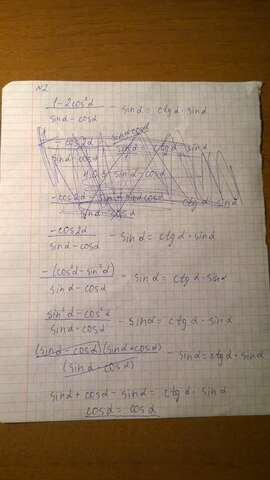 N2
1-2cos²α / sinα-cosα - sinα = ctgα · sinα
-cos2α / sinα-cosα - sinα = ctgα · sinα
-(cos²α-sin²α) / sinα-cosα - sinα = ctgα · sinα
sin²α-cos²α / sinα-cosα - sinα = ctgα · sinα
(sinα-cosα)(sinα+cosα) / (sinα-cosα) - sinα = ctgα · sinα
sinα+cosα-sinα = ctgα · sinα
cosα = cosα